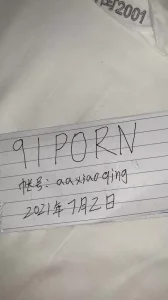 2001
91PORN
帐号：aaxiaoqing
2021年7月2日